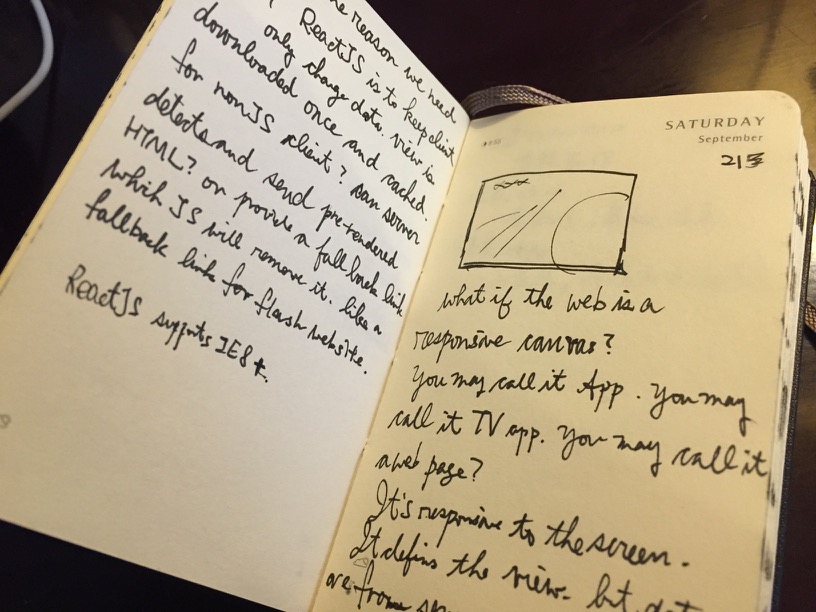 he reason we need
ReactJS is to keep client
only change data. view is
downloaded once and cached.
for nonJS client? can server
detects and send pre-rendered
HTML? or provide a fallback link
which JS will remove it. like a
fallback link for flash website.
ReactJS supports IE8+.
SATURDAY
September
what if the web is a
responsive canvas?
You may call it App. You may
call it TV app. You may call it
a web page?
It's responsive to the screen.
It defins the view. but dat
are from ser